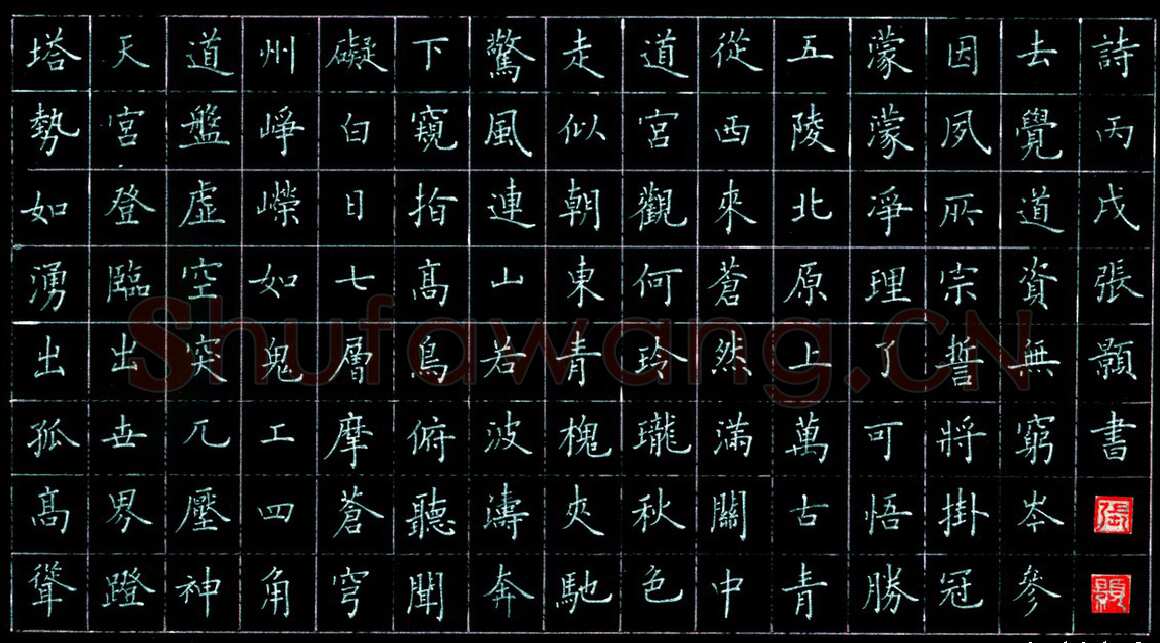 塔勢如湧出孤髙聳
天宮登臨出世界蹬
道盤虛空突兀壓神
州崢嶸如鬼工四角
礙白日七層摩蒼穹
下窺指髙鳥俯聽聞
驚風連山若波濤奔
走似朝東青槐夾馳
道宮觀何玲瓏秋色
從西來蒼然滿關中
五陵北原上萬古青
濛濛凈理了可悟勝
因夙所宗誓將掛冠
去覺道資無窮岑參
詩丙戌張顥書
張
顥
Shufawang.CN